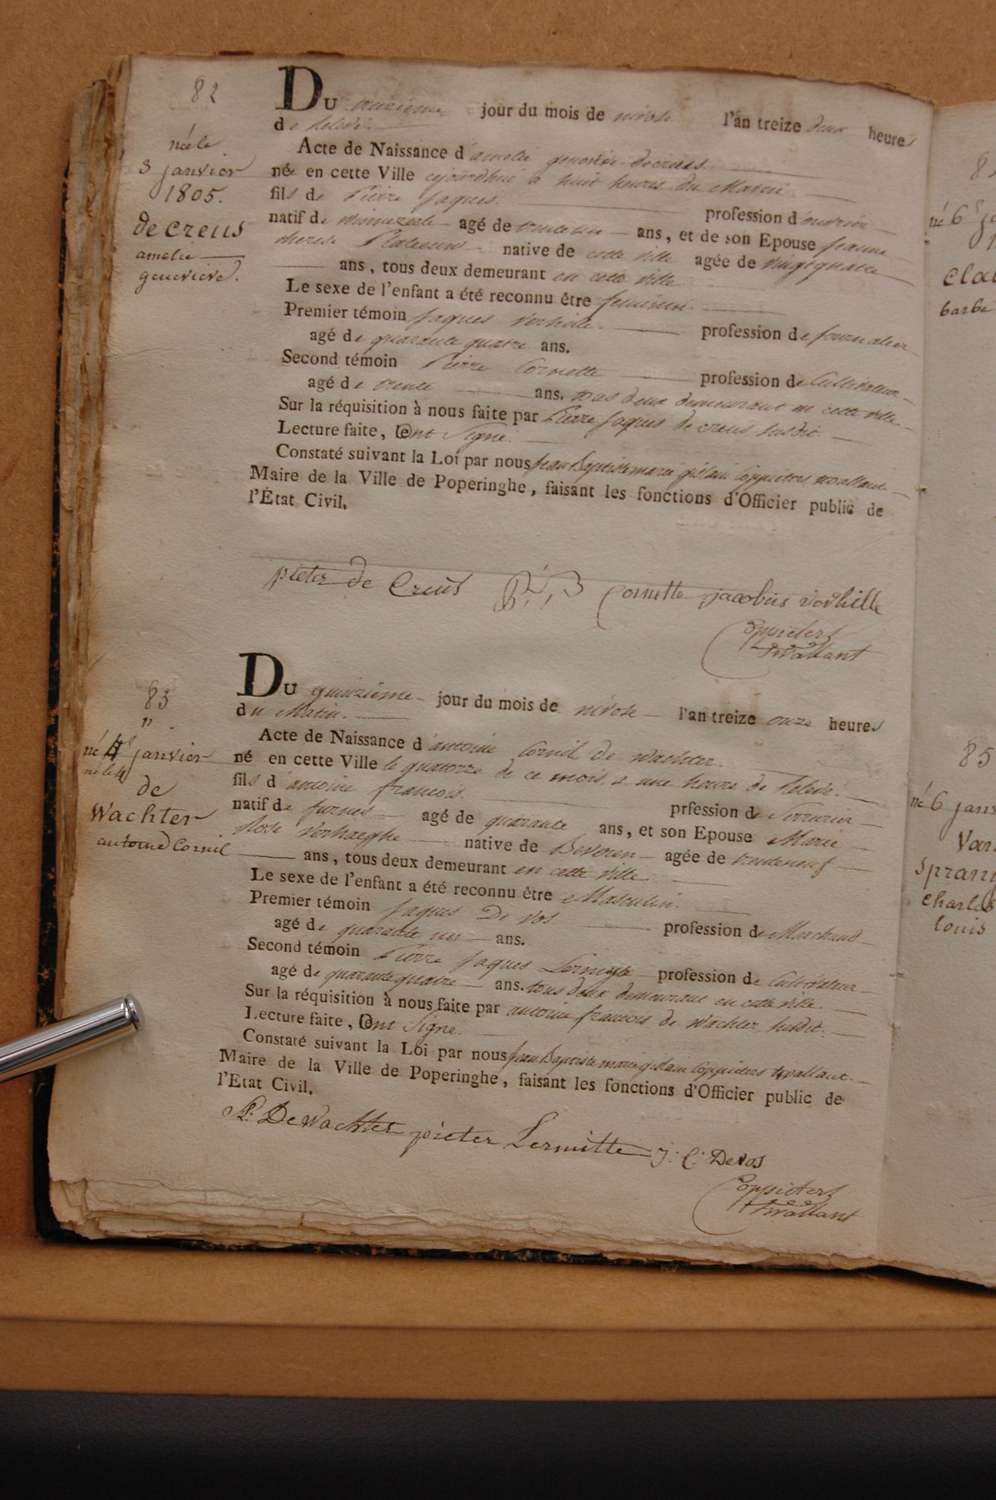 82
né le
3 janvier
1805.
de creus
amelie
genevieve.
Du jour du mois de nivose l'an treize deux heures
de Relevée
Acte de Naissance d'amelie genevieve decreus
née en cette Ville cejourdhui a huit heures du Matin
fils de Pierre Jaques. profession d
natif de agé de ans, et de son Epouse jeanne
therese native de cette ville agée de vingtquatre
ans, tous deux demeurant en cette ville
Le sexe de l'enfant a été reconnu être feminin.
Premier témoin Jaques verhille. profession de journalier
agé de quarante quatre ans.
Second témoin Pierre Cornette profession de Cultivateur
agé de trente ans. tous deux demeurant en cette ville.
Sur la réquisition à nous faite par Pierre Jaques de creus susdit
Lecture faite, ont Signe.
Constaté suivant la Loi par nous jean Baptiste marie gislain Coppieters twallant
Maire de la Ville de Poperinghe, faisant les fonctions d'Officier public de
l'État Civil.
pieter de Creus P. B. Cornette jacobus verhille
Coppieters
twallant
83
"
né 4 janvier
né le 4
de
Wachter
antoine Cornil
Du quinzième jour du mois de nivose l'an treize onze heures
du Matin.
Acte de Naissance d'antoine Cornil de wachter.
né en cette Ville le quatorze de ce mois a une heure de Relevée.
fils d'antoine francois. prfession de Serrurier
natif de furnes agé de quarante ans, et son Epouse Marie
Rose Verhaeghe native de Beveren agée de trenteneuf
ans, tous deux demeurant en cette ville
Le sexe de l'enfant a été reconnu être Masculin.
Premier témoin Jaques De Vos profession de Marchand
agé de quarante un ans.
Second témoin Pierre Jaques Lermytte profession de Cultivateur
agé de quarantequatre ans. tous deux demeurant en cette ville.
Sur la réquisition à nous faite par antoine francois de wachter susdit.
Lecture faite, ont Signe.
Constaté suivant la Loi par nous jean Baptiste marie gislain Coppieters twallant
Maire de la Ville de Poperinghe, faisant les fonctions d'Officier public de
l'Etat Civil.
A: F: DeWachter pieter Lermitte J: C: Devos
Coppieters
twallant
né 6
clau
barbe
85
né 6 janv
Van
Spran
charles
louis